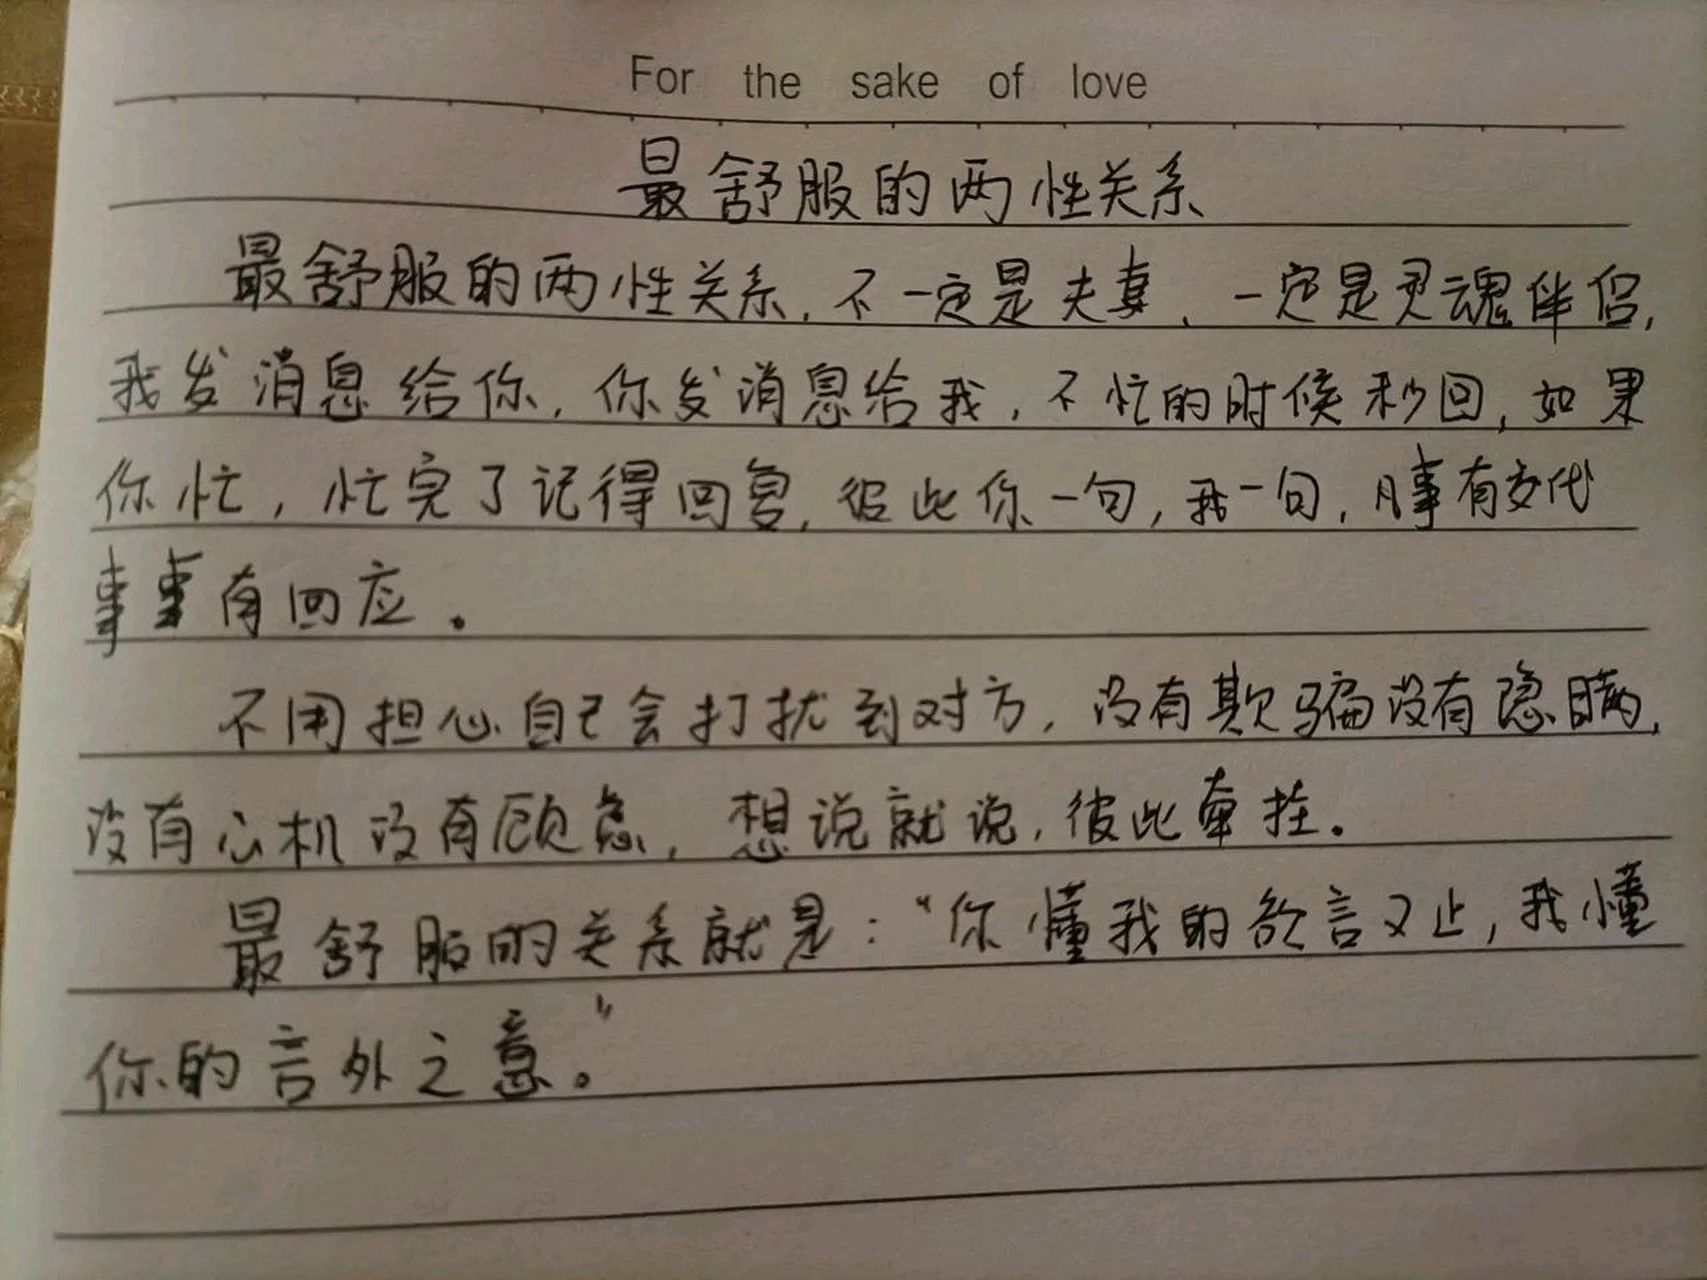 For the sake of love
最舒服的两性关系
最舒服的两性关系,不一定是夫妻、一定是灵魂伴侣,
我发消息给你,你发消息给我,不忙的时候秒回,如果
你忙,忙完了记得回复,彼此你一句,我一句,凡事有交代
事事有回应。
不用担心自己会打扰到对方,没有欺骗没有隐瞒,
没有心机没有顾忌,想说就说,彼此牵挂。
最舒服的关系就是:“你懂我的欲言又止,我懂
你的言外之意。”